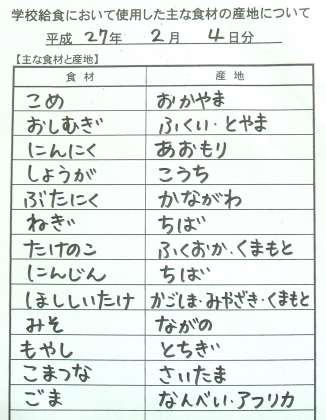 学校給食において使用した主な食材の産地について
平成 27年 2月 4日分
【主な食材と産地】
食材 産地
こめ おかやま
おしむぎ ふくい・とやま
にんにく あおもり
しょうが こうち
ぶたにく かながわ
ねぎ ちば
たけのこ ふくおか・くまもと
にんじん ちば
ほししいたけ かごしま・みやざき・くまもと
みそ ながの
もやし とちぎ
こまつな さいたま
ごま なんべい・アフリカ